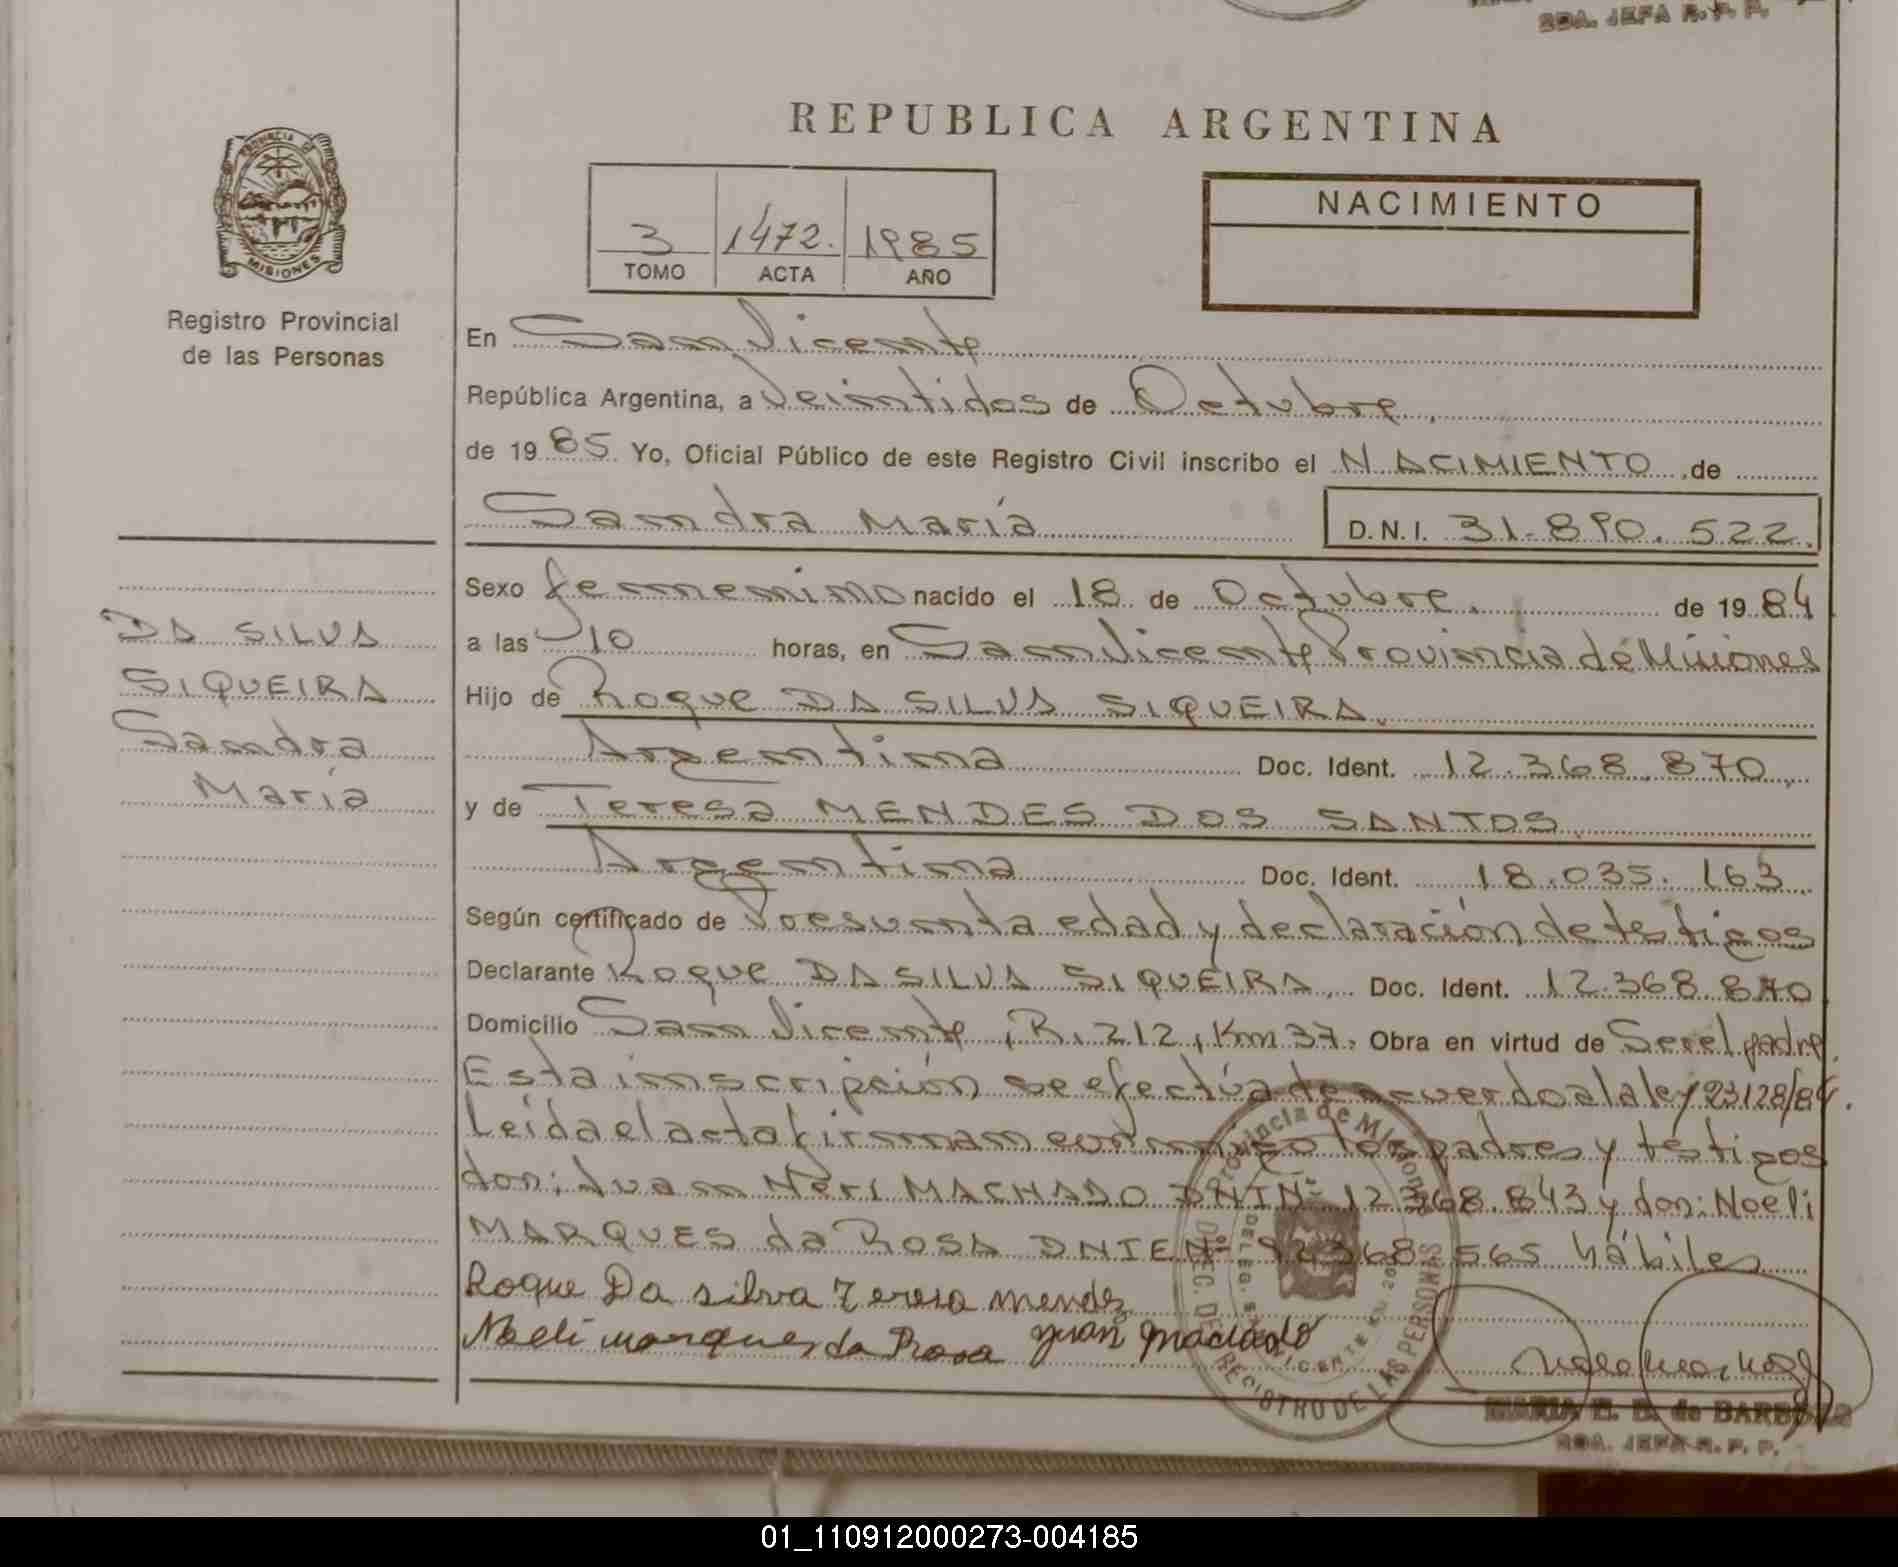 SDA. JEFA R. P. P.
REPUBLICA ARGENTINA
PROVINCIA
MISIONES
Registro Provincial
de las Personas
3 1472. 1985
TOMO ACTA AÑO
NACIMIENTO
En San Vicente
República Argentina, a Veintidos de Octubre.
de 1985 Yo, Oficial Público de este Registro Civil inscribo el NACIMIENTO, de
Sandra María D.N.I. 31.890.522.
DA SILVA
SIQUEIRA
Sandra
María
Sexo femenino nacido el 18 de Octubre. de 1984
a las 10 horas, en San Vicente Provincia de Misiones
Hijo de Roque DA SILVA SIQUEIRA.
Argentina Doc. Ident. 12.368.870,
y de Teresa MENDES DOS SANTOS.
Argentina Doc. Ident. 18.035.163
Según certificado de Presunta edad y declaración de testigos
Declarante Roque DA SILVA SIQUEIRA, Doc. Ident. 12.368.870
Domicilio San Vicente, R. 212, Km 37. Obra en virtud de Ser el padre.
Esta inscripción se efectúa de acuerdo a la ley 23128/84.
Leída el acta firman conmigo los padres y testigos
don: Juan Neri MACHADO DNI N° 12.368.843 y don: Noeli
MARQUES da ROSA DNI EN° 92368.565 hábiles
Roque Da silva Teresa mendes
Noeli marques da Rosa Juan machado
Provincia de Misiones
REGISTRO DE LAS PERSONAS
MARIA E. B. de BARBOZA
SDA. JEFA R. P. P.
01_110912000273-004185